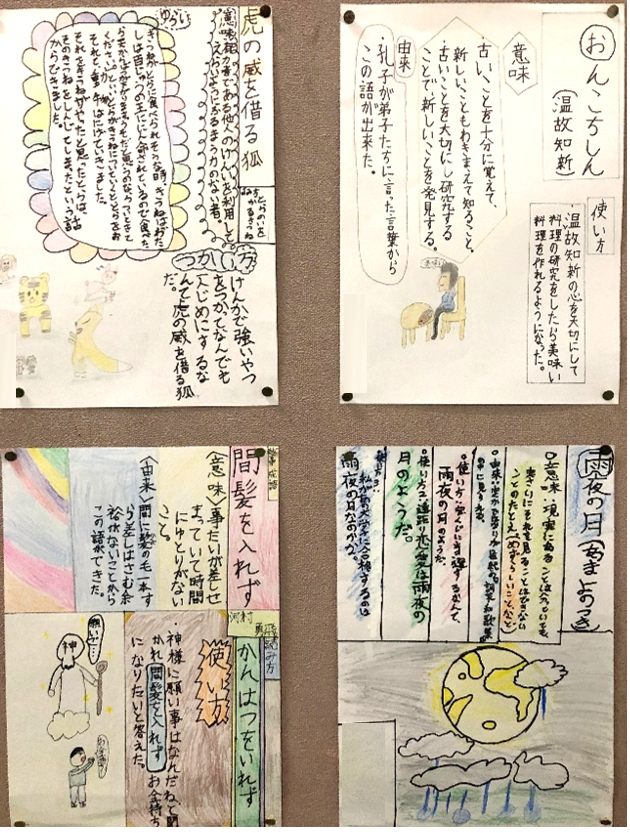 虎の威を借る狐
よみ方
とらのいをかるきつね
意味
権力者である他人のけんいを利用して
えらいようにふるまう力のない者。
ゆらい
きつねがとらに食べられそうな時、きつねは「わた
しは百じゅうの王ににん命されているので食べた
それをきつねがやったと思ったとらは、
そのきつねをしんじてしまったという話
からできました。
つかい方
けんかで強いやつ
をつかてなんでも
人じめにするな
んて虎の威を借る狐
だ。
おんこちしん
（温故知新）
意味
・古いことを十分に覚えて、
新しいこともわきまえて知ること。
・古いことを大切にし研究する
ことで新しいことを発見する。
由来
・孔子が弟子たちに言た言葉から
この語が出来た。
使い方
・温故知新の心を大切にして
料理の研究をしたら美味しい
料理を作れるようになった。
故事成語
間髪を入れず
〈意味〉事たいが差しせ
まっていて時間
にゆとりがない
こと。
〈由来〉間に髪の毛一本す
ら差しはさむ余
裕がないことから
この語ができた。
読み方
かんはつをいれず
使い方
・神様に願い事はなんだねと聞
かれ間髪を入れずお金持ち
になりたいと答えた。
神
願いは…
雨夜の月（あまよのつき）
○意味 現実にあることはわかっていても、
実さいにそれを見ることはできない
ことのたとえ（めずらしいことなど）
雨夜の月のようだ。
・使い方2 遠距り恋愛は雨夜の
月のようだ。
・使い方3
私が東大学に合格するのは
雨夜の月なのかな。